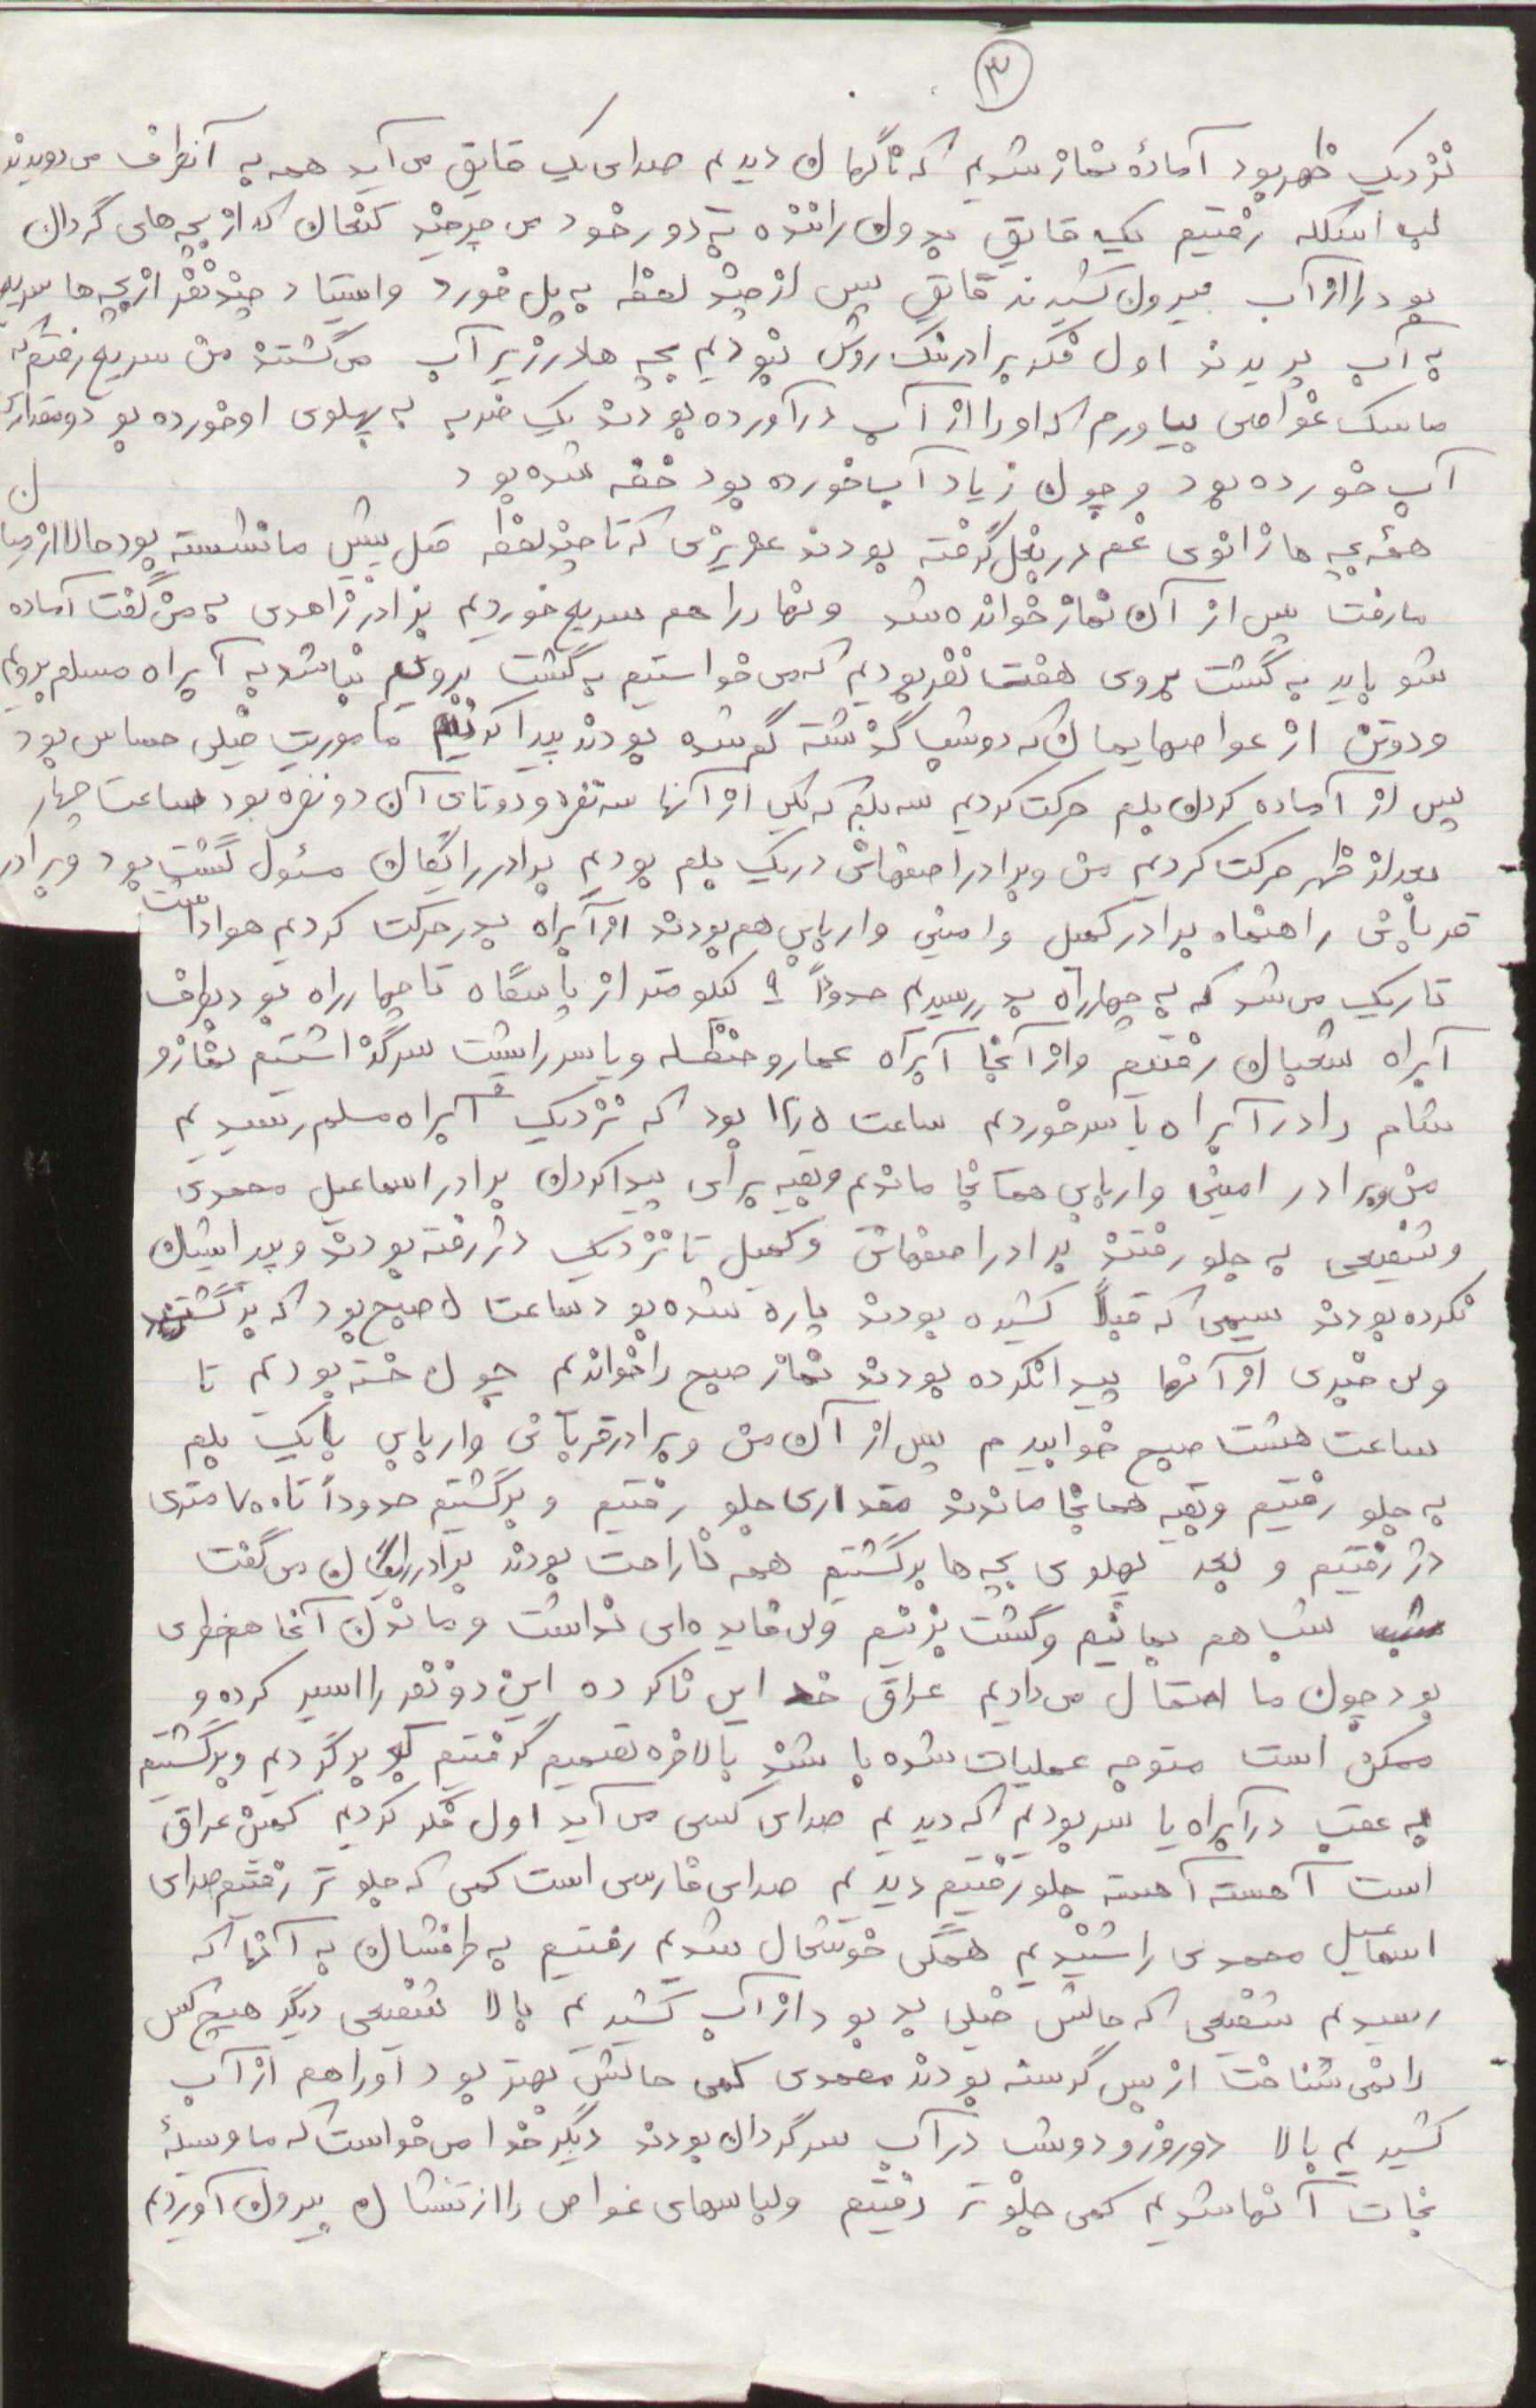 ۳
نزدیک ظهر بود آمادهٔ نماز شدیم که ناگهان دیدیم صدای یک قایق می‌آید همه به آنطرف می‌دویدند
لب اسکله رفتیم یک قایق بدون راننده به دور خود می‌چرخید کنعان که از بچه‌های گردان
بود را از آب بیرون کشیدند قایق پس از چند لحظه به پل خورد و ایستاد چند نفر از بچه‌ها سریع
به آب پریدند اول فکر برادر نیک‌روش نبودیم بچه‌ها در زیر آب می‌گشتند من سریع رفتم که
ماسک غواصی بیاورم که او را از آب درآورده بودند یک ضربه به پهلوی او خورده بود و مقداری
آب خورده بود و چون زیاد آب خورده بود خفه شده بود
همه بچه‌ها زانوی غم در بغل گرفته بودند عزیزی که تا چند لحظه قبل پیش ما نشسته بود حالا از میان
ما رفت پس از آن نماز خوانده شد و نهار را هم سریع خوردیم برادر زاهدی به من گفت آماده
شو باید به گشت بروی هفت نفر بودیم که می‌خواستیم به گشت برویم بنا شد به آبراه مسلم برویم
و دو تن از غواصهایمان که دو شب گذشته گم شده بودند پیدا کنیم ماموریت خیلی حساس بود
پس از آماده کردن بلم حرکت کردیم سه بلم که یکی از آنها سه نفره و دوتای آن دو نفره بود ساعت چهار
بعد از ظهر حرکت کردیم من و برادر اصفهانی در یک بلم بودیم برادر رایگان مسئول گشت بود و برادر
قربانی راهنما، برادر کمیل و امینی و اربابی هم بودند از آبراه بدر حرکت کردیم هوا داشت
تاریک می‌شد که به چهارراه بدر رسیدیم حدوداً ۹ کیلومتر از پاسگاه تا چهارراه بود بطرف
آبراه شعبان رفتیم و از آنجا آبراه عمار و حنظله و یاسر را پشت سر گذاشتیم نماز و
شام را در آبراه یاسر خوردیم ساعت ۱۲/۵ بود که نزدیک آبراه مسلم رسیدیم
من و برادر امینی و اربابی همانجا ماندیم و بقیه برای پیدا کردن برادر اسماعیل محمودی
و شفیعی به جلو رفتند برادر اصفهانی و کمیل تا نزدیک دژ رفته بودند و پیدایشان
نکرده بودند سیمی که قبلاً کشیده بودند پاره شده بود ساعت ۵ صبح بود که برگشتند
ولی خبری از آنها پیدا نکرده بودند نماز صبح را خواندیم چون خسته بودیم تا
ساعت هشت صبح خوابیدیم پس از آن من و برادر قربانی و اربابی با یک بلم
به جلو رفتیم و بقیه همانجا ماندند مقداری جلو رفتیم و برگشتیم حدوداً تا ۷۰۰ متری
دژ رفتیم و بعد پهلوی بچه‌ها برگشتیم همه ناراحت بودند برادر رایگان می‌گفت
شب هم بمانیم و گشت بزنیم ولی فایده‌ای نداشت و ماندن آنجا هم خطری
بود چون ما احتمال می‌دادیم عراق خدای ناکرده این دو نفر را اسیر کرده و
ممکن است متوجه عملیات شده باشند بالاخره تصمیم گرفتیم که برگردیم و برگشتیم
به عقب در آبراه یاسر بودیم که دیدیم صدای کسی می‌آید اول فکر کردیم کمین عراق
است آهسته آهسته جلو رفتیم دیدیم صدای فارسی است کمی که جلوتر رفتیم صدای
اسماعیل محمودی را شنیدیم همگی خوشحال شدیم رفتیم به طرفشان به آنها که
رسیدیم شفیعی که حالش خیلی بد بود از آب کشیدیم بالا شفیعی دیگر هیچ کس
را نمی‌شناخت از بس گرسنه بودند محمودی کمی حالش بهتر بود او را هم از آب
کشیدیم بالا دو روز و دو شب در آب سرگردان بودند دیگر خدا می‌خواست که ما وسیلهٔ
نجات آنها شدیم کمی جلوتر رفتیم و لباسهای غواصی را از تنشان بیرون آوردیم